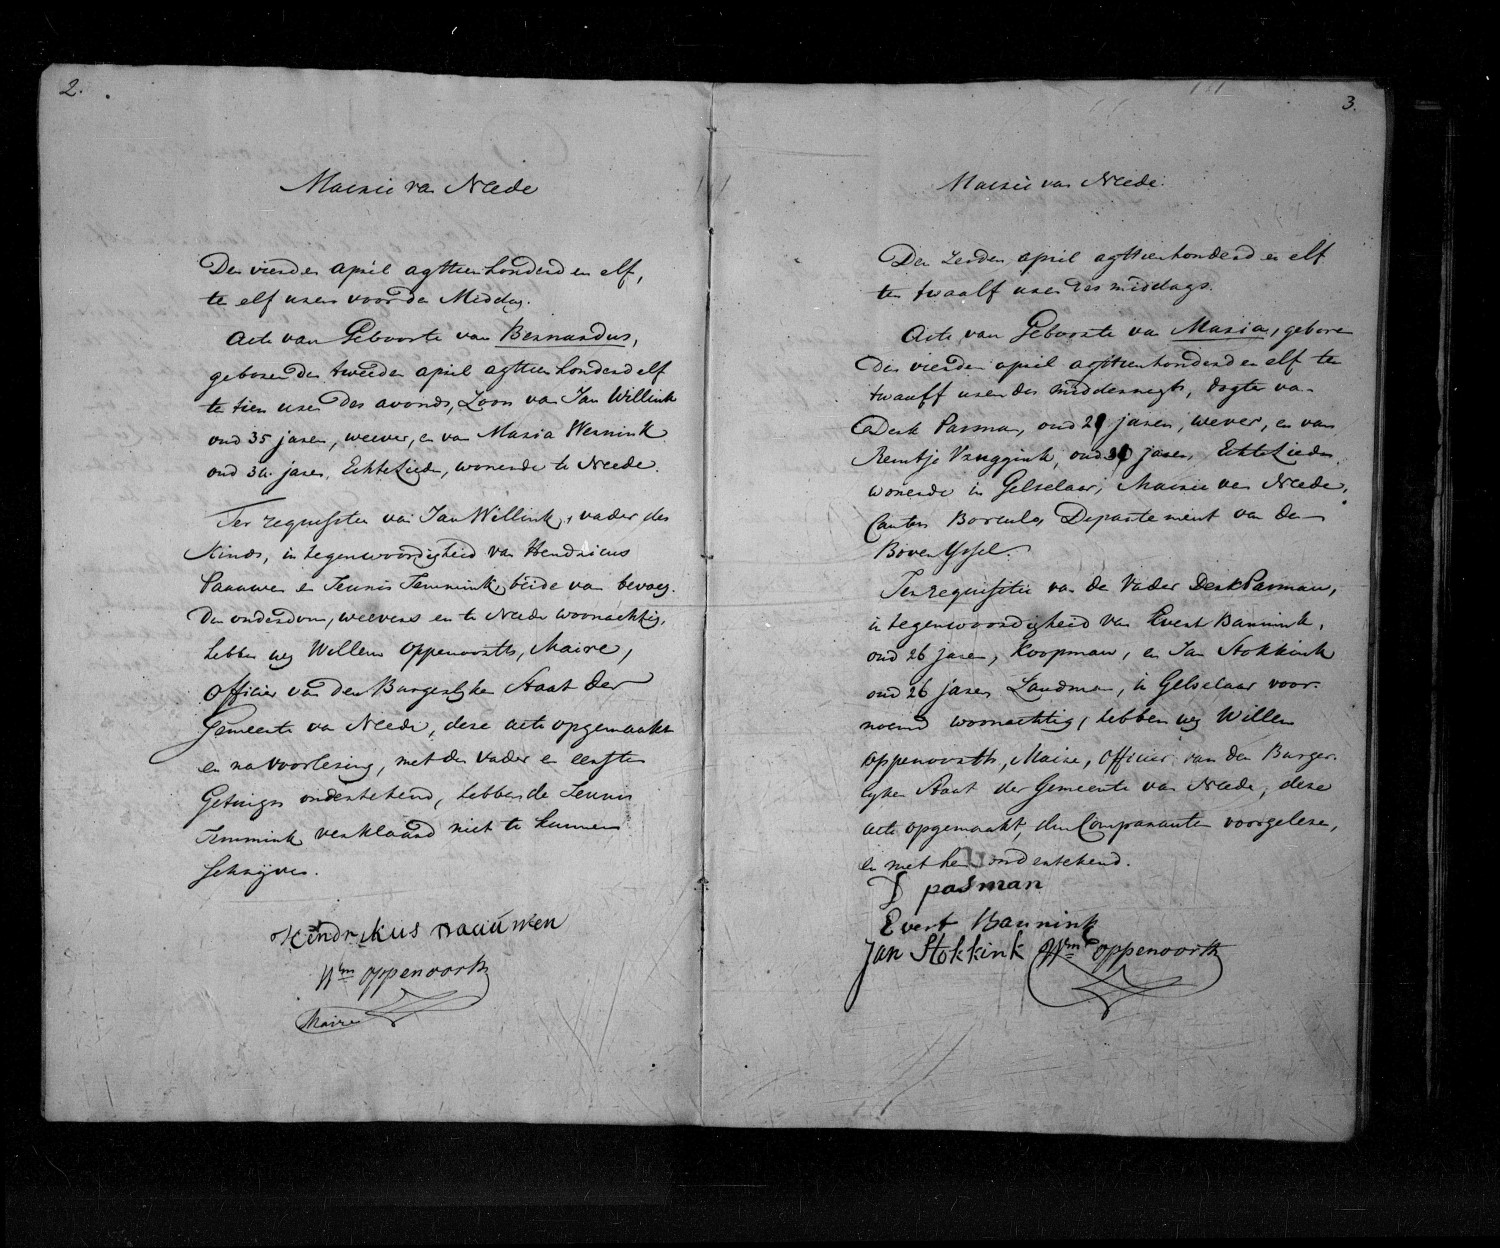 2.
Mairie van Neede
Den vierden april agttienhonderd en elf,
te elf uren voor de Middag.
Acte van Geboorte van Bernardus,
geboren den tweeden april agttienhonderd elf
te tien uren des avonds, Zoon van Jan Willink
oud 35 jaren, weever, en van Maria Wernink
oud 30 jaren, Echte Lieden, wonende te Neede.
Ter requisitie van Jan Willink, vader des
Kinds, in tegenwoordigheid van Hendricus
Paauwen en Teunis Temmink, beide van bevoeg-
den ouderdom, weevers en te Neede woonachtig,
hebben wy Willem Oppenoorth, Maire,
Officier van den Burgerlyken Staat der
Gemeente van Neede, deze acte opgemaakt
en na voorlezing, met den vader en eersten
Getuigen ondertekend, hebbende Teunis
Temmink verklaard niet te kunnen
Schrijven.
Hendrikus Paauwen
Wm Oppenoorth
Maire
3.
Mairie van Neede.
Den Zesden april agttienhonderd en elf
ten twaalf uren des middags.
Acte van Geboorte van Maria, geboren
den vierden april agttienhonderd en elf te
twaalf uren des middernagts, dogter van
Derk Pasman, oud 29 jaren, wever, en van
Reintje Vruggink, oud 30 jaren, Echte Lieden
wonende in Gelselaar, Mairie van Neede,
Canton Borculo, Departement van den
Boven Yssel.
Ter requisitie van de Vader Derk Pasman,
in tegenwoordigheid van Evert Bannink,
oud 26 jaren, Koopman, en Jan Stokkink
oud 26 jaren Landman, in Gelselaar voor-
noemd woonachtig, hebben wy Willem
Oppenoorth, Maire, Officier van den Burger-
lyken Staat der Gemeente van Neede, deze
acte opgemaakt, den Comparanten voorgelesen,
en met hen ondertekend.
D pasman
Evert Bannink
Jan Stokkink Wm Oppenoorth